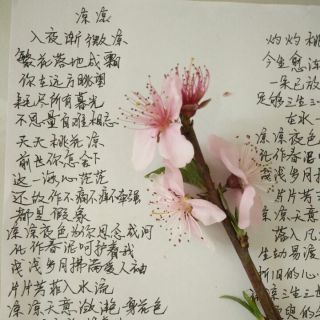 凉凉
入夜渐微凉
繁花落地成霜
你在远方眺望
耗尽所有暮光
不思量自难相忘
夭夭桃花凉
前世你怎舍下
这一海心茫茫
还故作不痛不痒不牵强
都是假象
凉凉夜色为你思念成河
化作春泥呵护着我
浅浅岁月拂满爱人袖
片片芳菲入水流
凉凉天意潋滟一身花色
灼灼桃
今生愈
一朵已放
足够三生三
在水一
凉凉夜色
化作春泥
浅浅岁月
片片芳
凉凉天意
落入凡
生劫易渡
折旧的心
凉三生三世